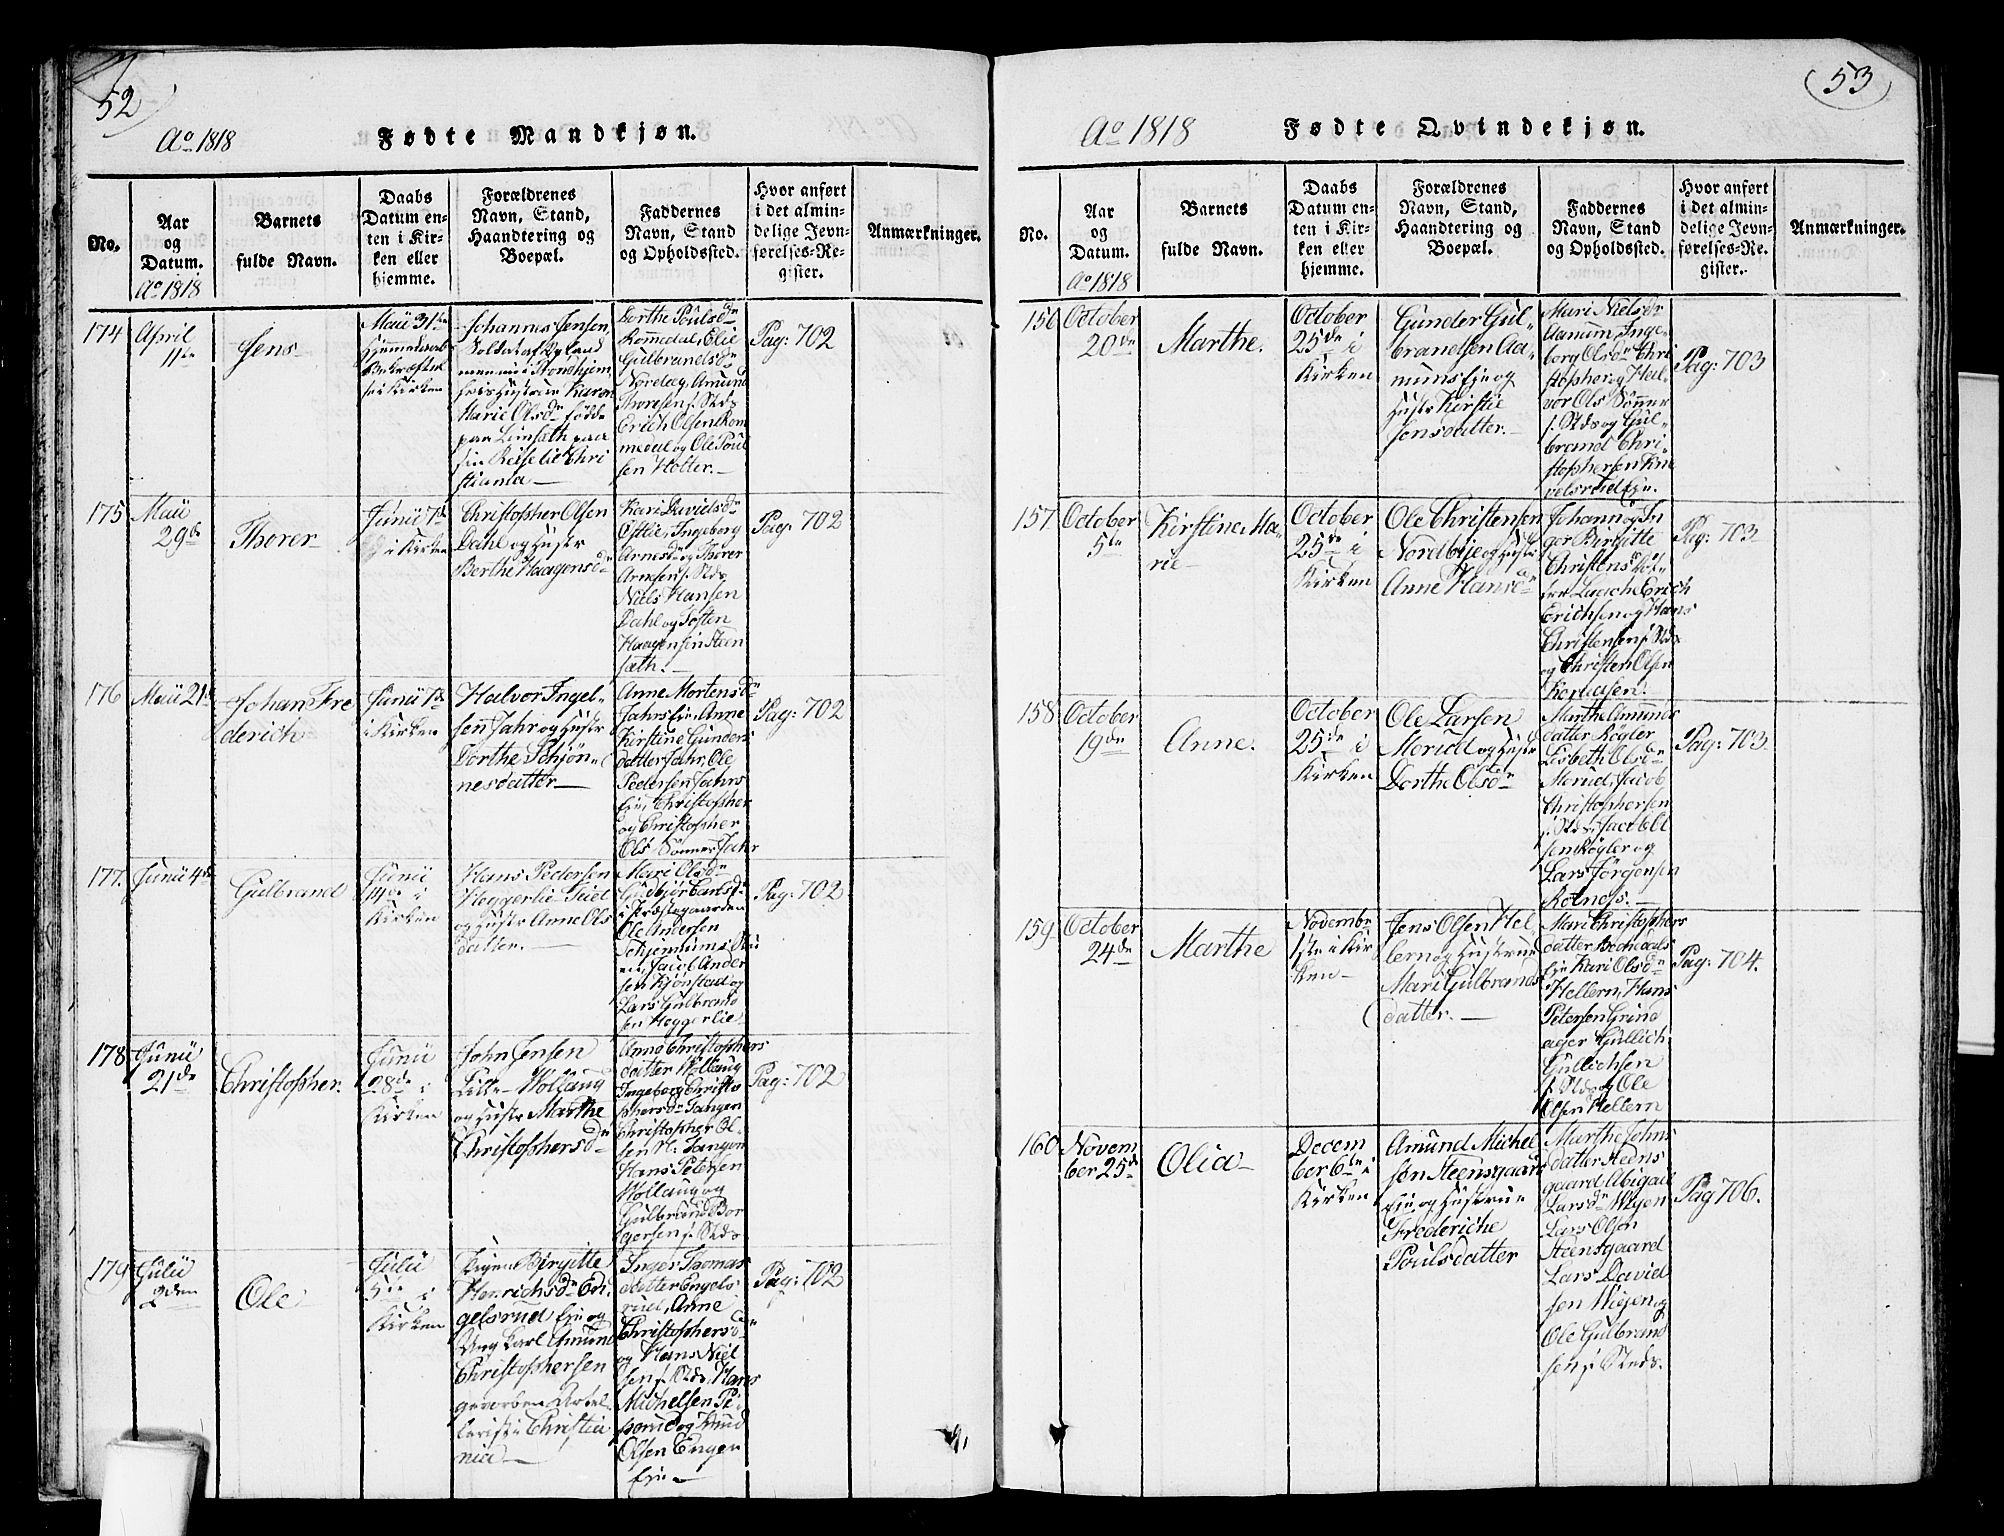 52
Ao 1818
Fødte Mandkjøn.
No.
Aar
og
Datum.
Ao 1818
Barnets
fulde Navn.
Daabs
Datum en-
ten i Kir-
ken eller
hjemme.
Forældrenes
Navn, Stand,
Haandtering og
Boepæl.
Faddernes
Navn, Stand
og Opholdssted.
Hvor anført
i det almin-
delige Jevn-
førelses-Re-
gister.
Anmærkninger.
174
April
11te
Jens
Maii 31te
i Kirken
Johannes Jensen
Soldat af
Trondhjem
Hustrue Karen
Marie Olsdr født
paa
sin Reise til Chri
stiania
Dorthe Poulsdr
Kommedal, Olie
Gulbrandsdr
Noreløg, Amund
Thoresen s. Stds
Erich Olsen Kom
medal og Ole Poul
sen Holter.
Pag: 702
175
Maii
29de
Thorer
Junii 7de
i Kirken
Christopher Olsen
Dahl og Hustr
Berthe Haagensdr
Kari Davidsdr
Østlie, Ingeborg
Arnesdr og Thorer
Arnesen s. Stds
Niels Hansen
Dahl og Tosten
Haagensen Steen
sæth.
Pag: 702
176
Maii 21de
Johan Fre
derich
Junii 7de
i Kirken
Halvor Ingel-
sen Jahr og Hustr
Dorthe Schjøn-
nesdatter
Anne Mortensdr
Jahrs Eje, Anne
Kirstine Gunders
datter Jahr, Ole
Pedersen Jahrs
Eje, Christopher
og Christopher
Ols Sønner Jahr
Pag: 702
177.
Junii 4de
Gulbrand
Junii
14de i
Kirken
Hans Pedersen
Heggerlie
og Hustr Anne Ols
datter.
Mari Olsdr
Gudbjør Carlsdr
i Præstegaarden
Ole Andersen
Schjennums
Jacob Ander
sen Kjønstad og
Lars Gulbrand
sen Heggerlie
Pag: 702
178
Junii
21de
Christopher.
Junii
28de i
Kirken
John Jensen
Lille Hollaug
og Hustr Marthe
Christophersdr
Anne Christophers
datter Hollaug
Ingeborg Christo
phersdr Tangen
Christopher Ol-
sen Tangen
Hans Petersen
Hollaug og
Gulbrand Bor
gersen s. Stds
Pag: 702
179
Julii
2den
Ole
Julii
5te i
Kirken
Pigen Birgitte
Henrichsdr En-
gelsrud Eje og
Ung Karl Amund
Christophersen
Christia
nia
Inger Thomas
datter Engels
rud, Anne
Christophersdr
og Hans Niel
sen s. Stds, Hans
Michelsen
og Knud
Olsen Engen
Eje
Pag: 702
53
Ao 1818
Fødte Qvindekjøn.
No.
Aar
og
Datum.
Ao 1818
Barnets
fulde Navn.
Daabs
Datum en-
ten i Kir-
ken eller
hjemme.
Forældrenes
Navn, Stand,
Haandtering og
Boepæl.
Faddernes
Navn, Stand
og Opholdssted.
Hvor anført
i det almin-
delige Jevn-
førelses-Re-
gister.
Anmærkninger.
156
October
20de
Marthe.
October
25de i
Kirken
Gunder Gul-
brandsen Aa-
mums Eje og
Hustr Kirstie
Jensdatter.
Mari Nielsdr
Aamum, Inge-
borg Olsdr Chri
stopher og Hal-
vor Ols Sønner
s. Stds og Gul-
brand Chri-
stophersen Kne
velsrud Eje.
Pag: 703
157.
October
5te
Kirstine Ma-
rie
October
25de i
Kirken
Ole Christensen
Nordbye og Hustr
Anne Hansdr
Johann og In
ger Birgitte
Christens
Erich
Erichsen og Hans
Christensen s. Stds
og Christen Olsen
Pag: 703
158
October
19de
Anne.
October
25de i
Kirken
Ole Larsen
Morud og Hustr
Dorthe Olsdr
Marthe Amunds
datter Røgler
Lisbeth Olsdr
Morud, Jacob
Christophersen
s. Stds, Jacob El
sen Røgler og
Lars Jørgensen
Rotnæs.
Pag: 703
159
October
24de
Marthe
Novembr
1ste i Kir
ken
Jens Olsen Hel
lern og Hustrue
Mari Gulbrands
datter.
Mari Christophers
datter
Eje Kari Olsdr
Hellern, Hans
Petersen Grind
ager Gullich
Gullichsen
s. Stds og Ole
Olsen Hellern
Pag: 704.
160
Novem
ber 25de
Olia
Decem
ber 6te i
Kirken
Amund Michel
sen Steensgaard
Eje og Hustrue
Frederiche
Poulsdatter
Marthe Johns
datter Steens
gaard Abigael
Larsdr Wigen
Lars Olsen
Steensgaard
Lars David
sen Wigen og
Ole Gulbrand
sen s. Steds.
Pag 706.